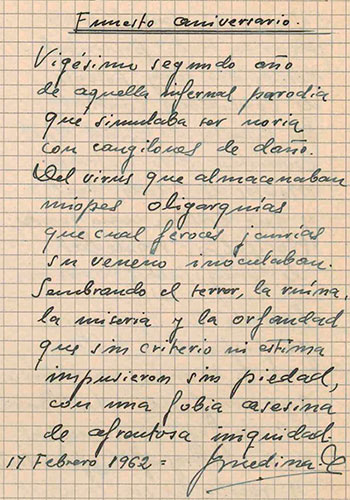 Funesto aniversario.
Vigésimo segundo año
de aquella infernal parodia
que simulaba ser noria
con cangilones de daño.
Del virus que almacenaban
miopes oligarquías
que cual feroces jaurías
su veneno inoculaban.
Sembrando el terror, la ruina,
la miseria y la orfandad
que sin criterio ni estima
impusieron sin piedad,
con una fobia asesina
de afrentosa iniquidad.
17 Febrero 1962 = Gmedina.